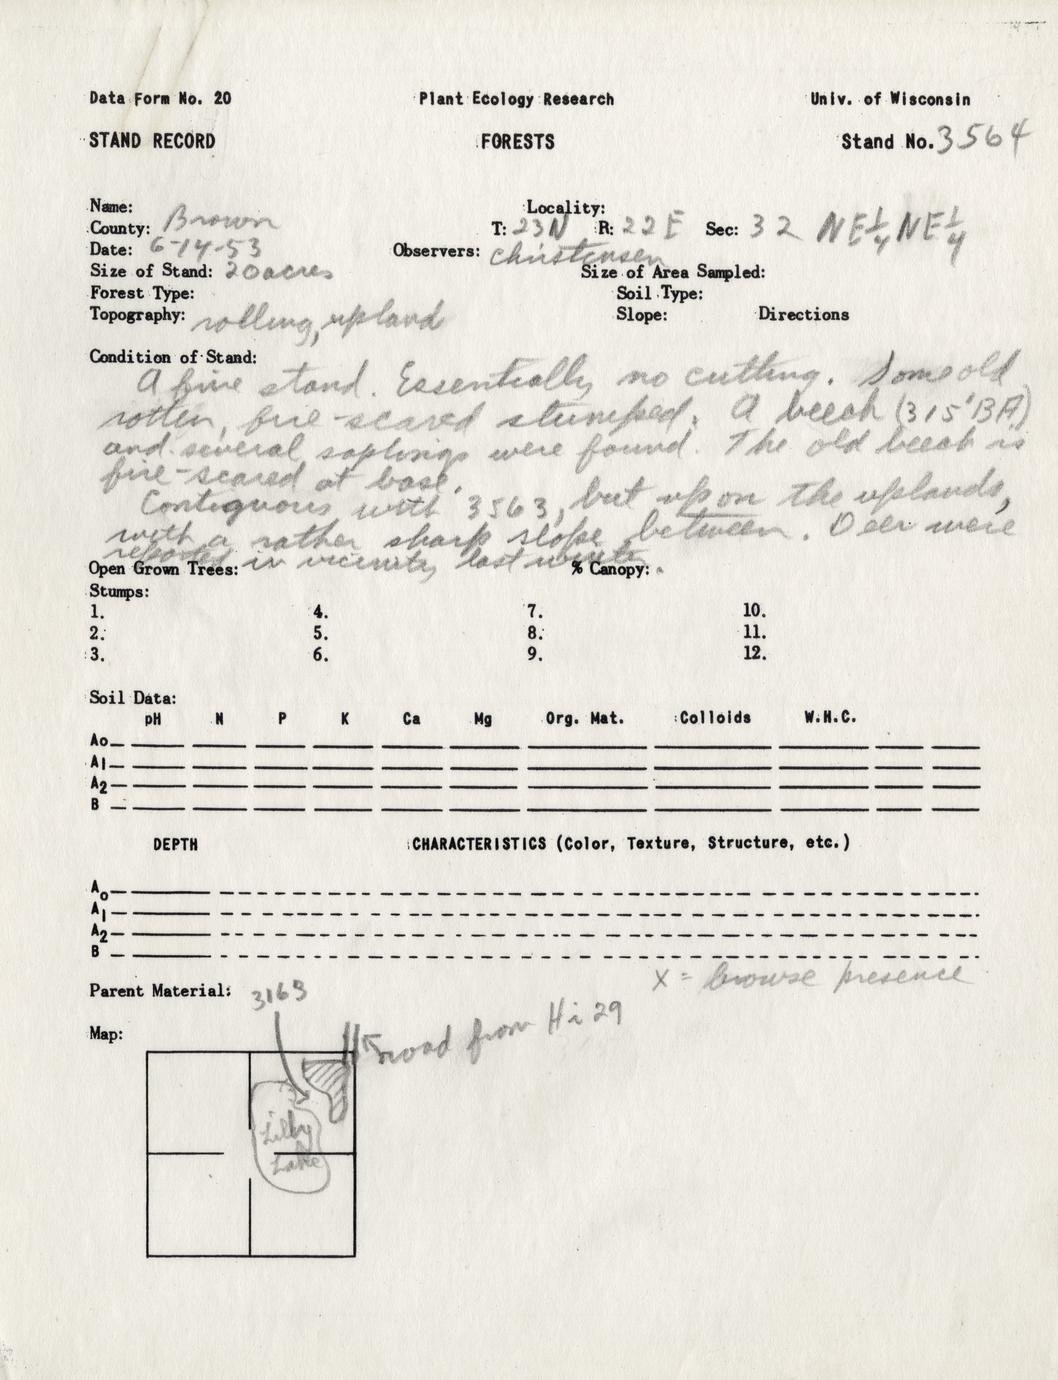 Data Form No. 20 Plant Ecology Research Univ. of Wisconsin
STAND RECORD FORESTS Stand No. 3564
Name: Locality:
County: Brown T: 23N R: 22E Sec: 32 NE¼NE¼
Date: 6-14-53 Observers: Christensen
Size of Stand: 20 acres Size of Area Sampled:
Forest Type: Soil Type:
Topography: rolling, upland Slope: Directions
Condition of Stand:
A fine stand. Essentially no cutting. Some old
rotten, fire-scared stumped. A beech (315"BA)
and several saplings were found. The old beech is
fire-scared at base.
Contiguous with 3563, but up on the uplands,
with a rather sharp slope between. Deer were
reported in vicinity last winter.
Open Grown Trees: % Canopy:
Stumps:
1. 4. 7. 10.
2. 5. 8. 11.
3. 6. 9. 12.
Soil Data:
pH N P K Ca Mg Org. Mat. Colloids W.H.C.
Ao
A1
A2
B
DEPTH CHARACTERISTICS (Color, Texture, Structure, etc.)
Ao
A1
A2
B
X = browse presence
Parent Material: 3163
Map: road from Hi 29
Lilly
Lake